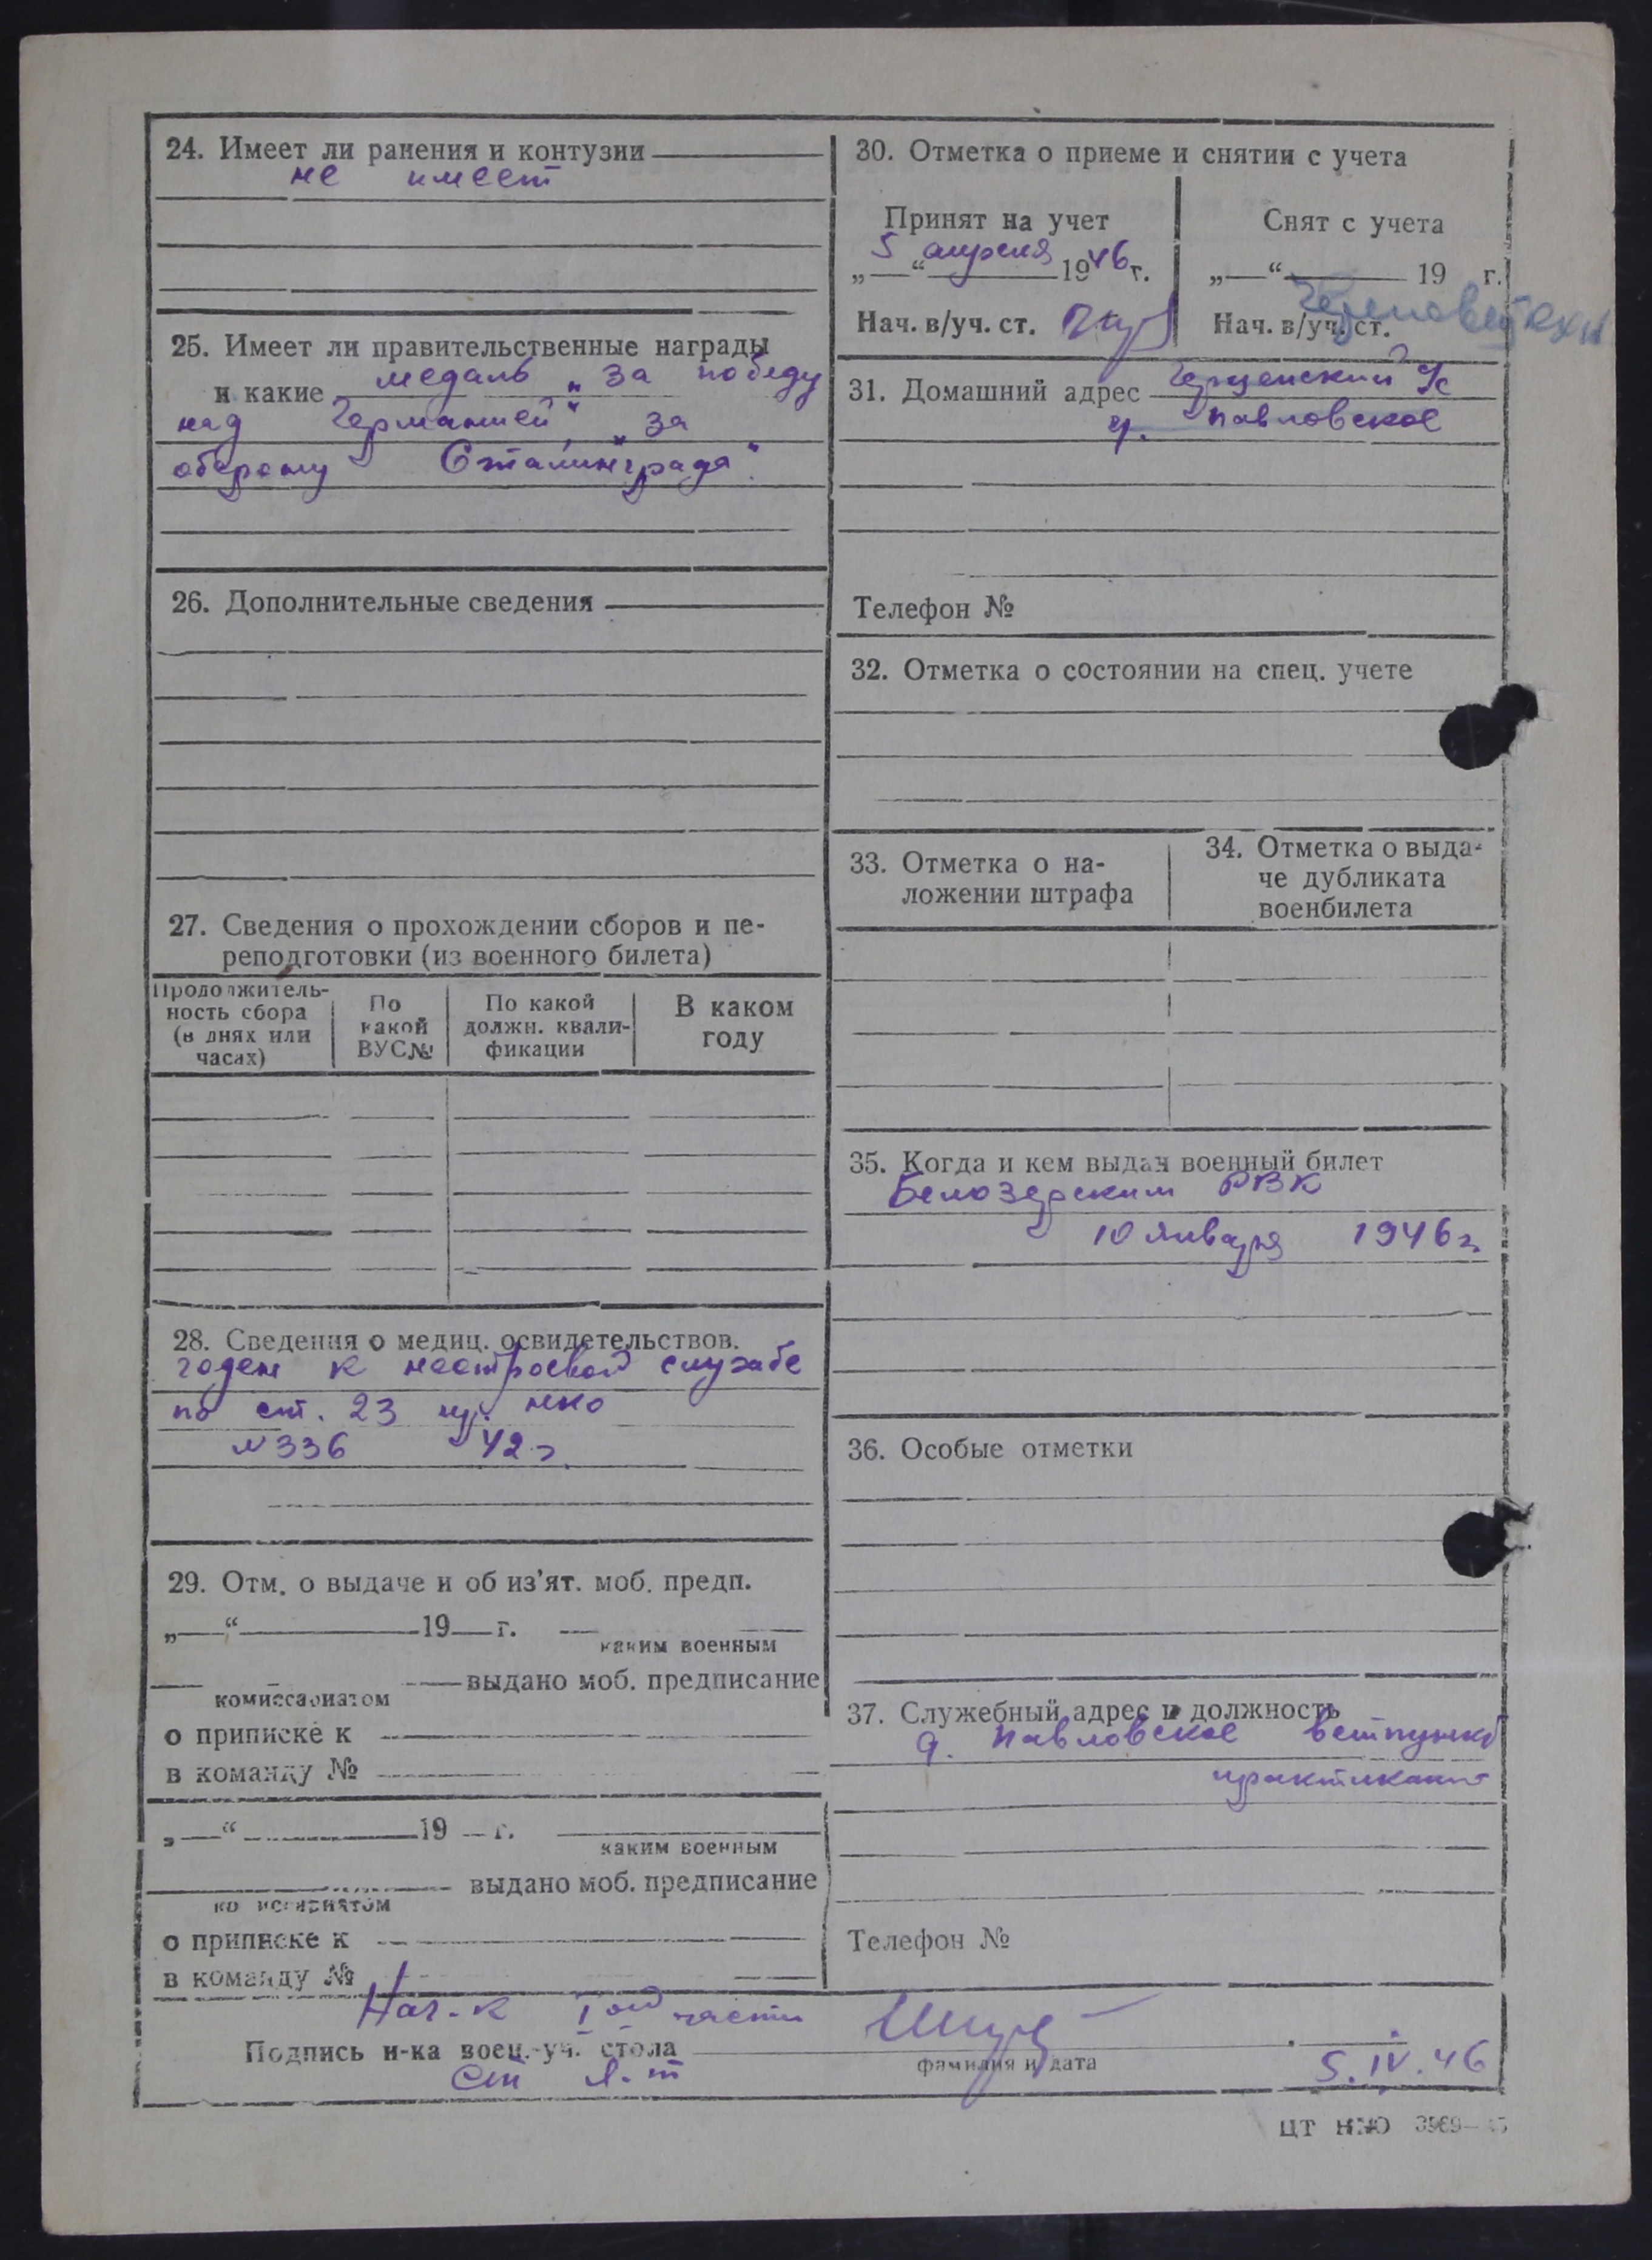 24. Имеет ли ранения и контузии
не имеет
25. Имеет ли правительственные награды
и какие медаль „За победу
над Германией“, „За
оборону Сталинграда“.
26. Дополнительные сведения
27. Сведения о прохождении сборов и пе-
реподготовки (из военного билета)
Продолжитель-
ность сбора
(в днях или
часах)
По
какой
ВУС№
По какой
должн. квали-
фикации
В каком
году
28. Сведения о медиц. освидетельствов.
годен к нестроевой службе
по ст. 23 пр. НКО
№336 42г.
29. Отм. о выдаче и об из'ят. моб. предп.
„—“ 19 г.
каким военным
комиссариатом выдано моб. предписание
о приписке к
в команду №
„—“ 19 г.
каким военным
комиссариатом выдано моб. предписание
о приписке к
в команду №
30. Отметка о приеме и снятии с учета
Принят на учет
„5“ апреля 1946 г.
Нач. в/уч. ст.
Снят с учета
„—“ 19 г.
Нач. в/уч. ст.
31. Домашний адрес с/с
Павловское
Телефон №
32. Отметка о состоянии на спец. учете
33. Отметка о на-
ложении штрафа
34. Отметка о выда-
че дубликата
военбилета
35. Когда и кем выдан военный билет
Белозерским РВК
10 января 1946г.
36. Особые отметки
37. Служебный адрес и должность
д. Павловское ветпункт
практикант
Телефон №
Нач-к 1ой части
Подпись н-ка воен.-уч. стола
фамилия и дата
Ст л-т
5.IV.46
ЦТ НКО